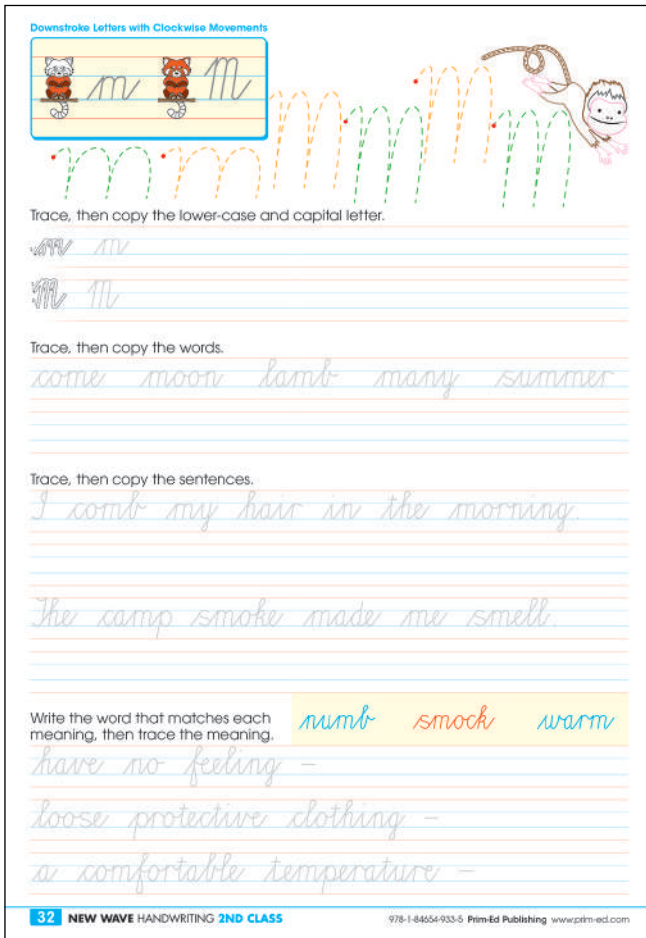 Downstroke Letters with Clockwise Movements
m M
m m m m m m
Trace, then copy the lower-case and capital letter.
m m
M M
Trace, then copy the words.
come moon lamb many summer
Trace, then copy the sentences.
I comb my hair in the morning.
The camp smoke made me smell.
Write the word that matches each
meaning, then trace the meaning.
numb smock warm
have no feeling –
loose protective clothing –
a comfortable temperature –
32 NEW WAVE HANDWRITING 2ND CLASS
978-1-84654-933-5 Prim-Ed Publishing www.prim-ed.com